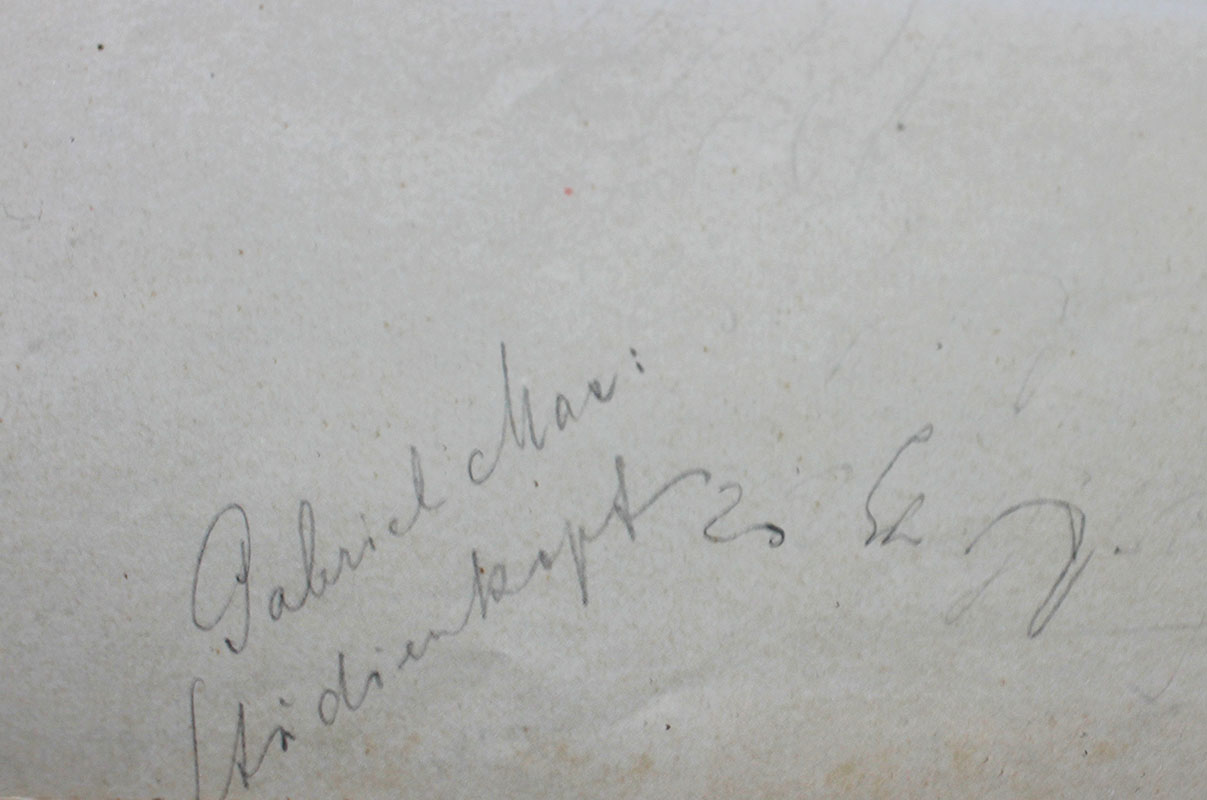 Gabriel Max:
Studienkopf zu